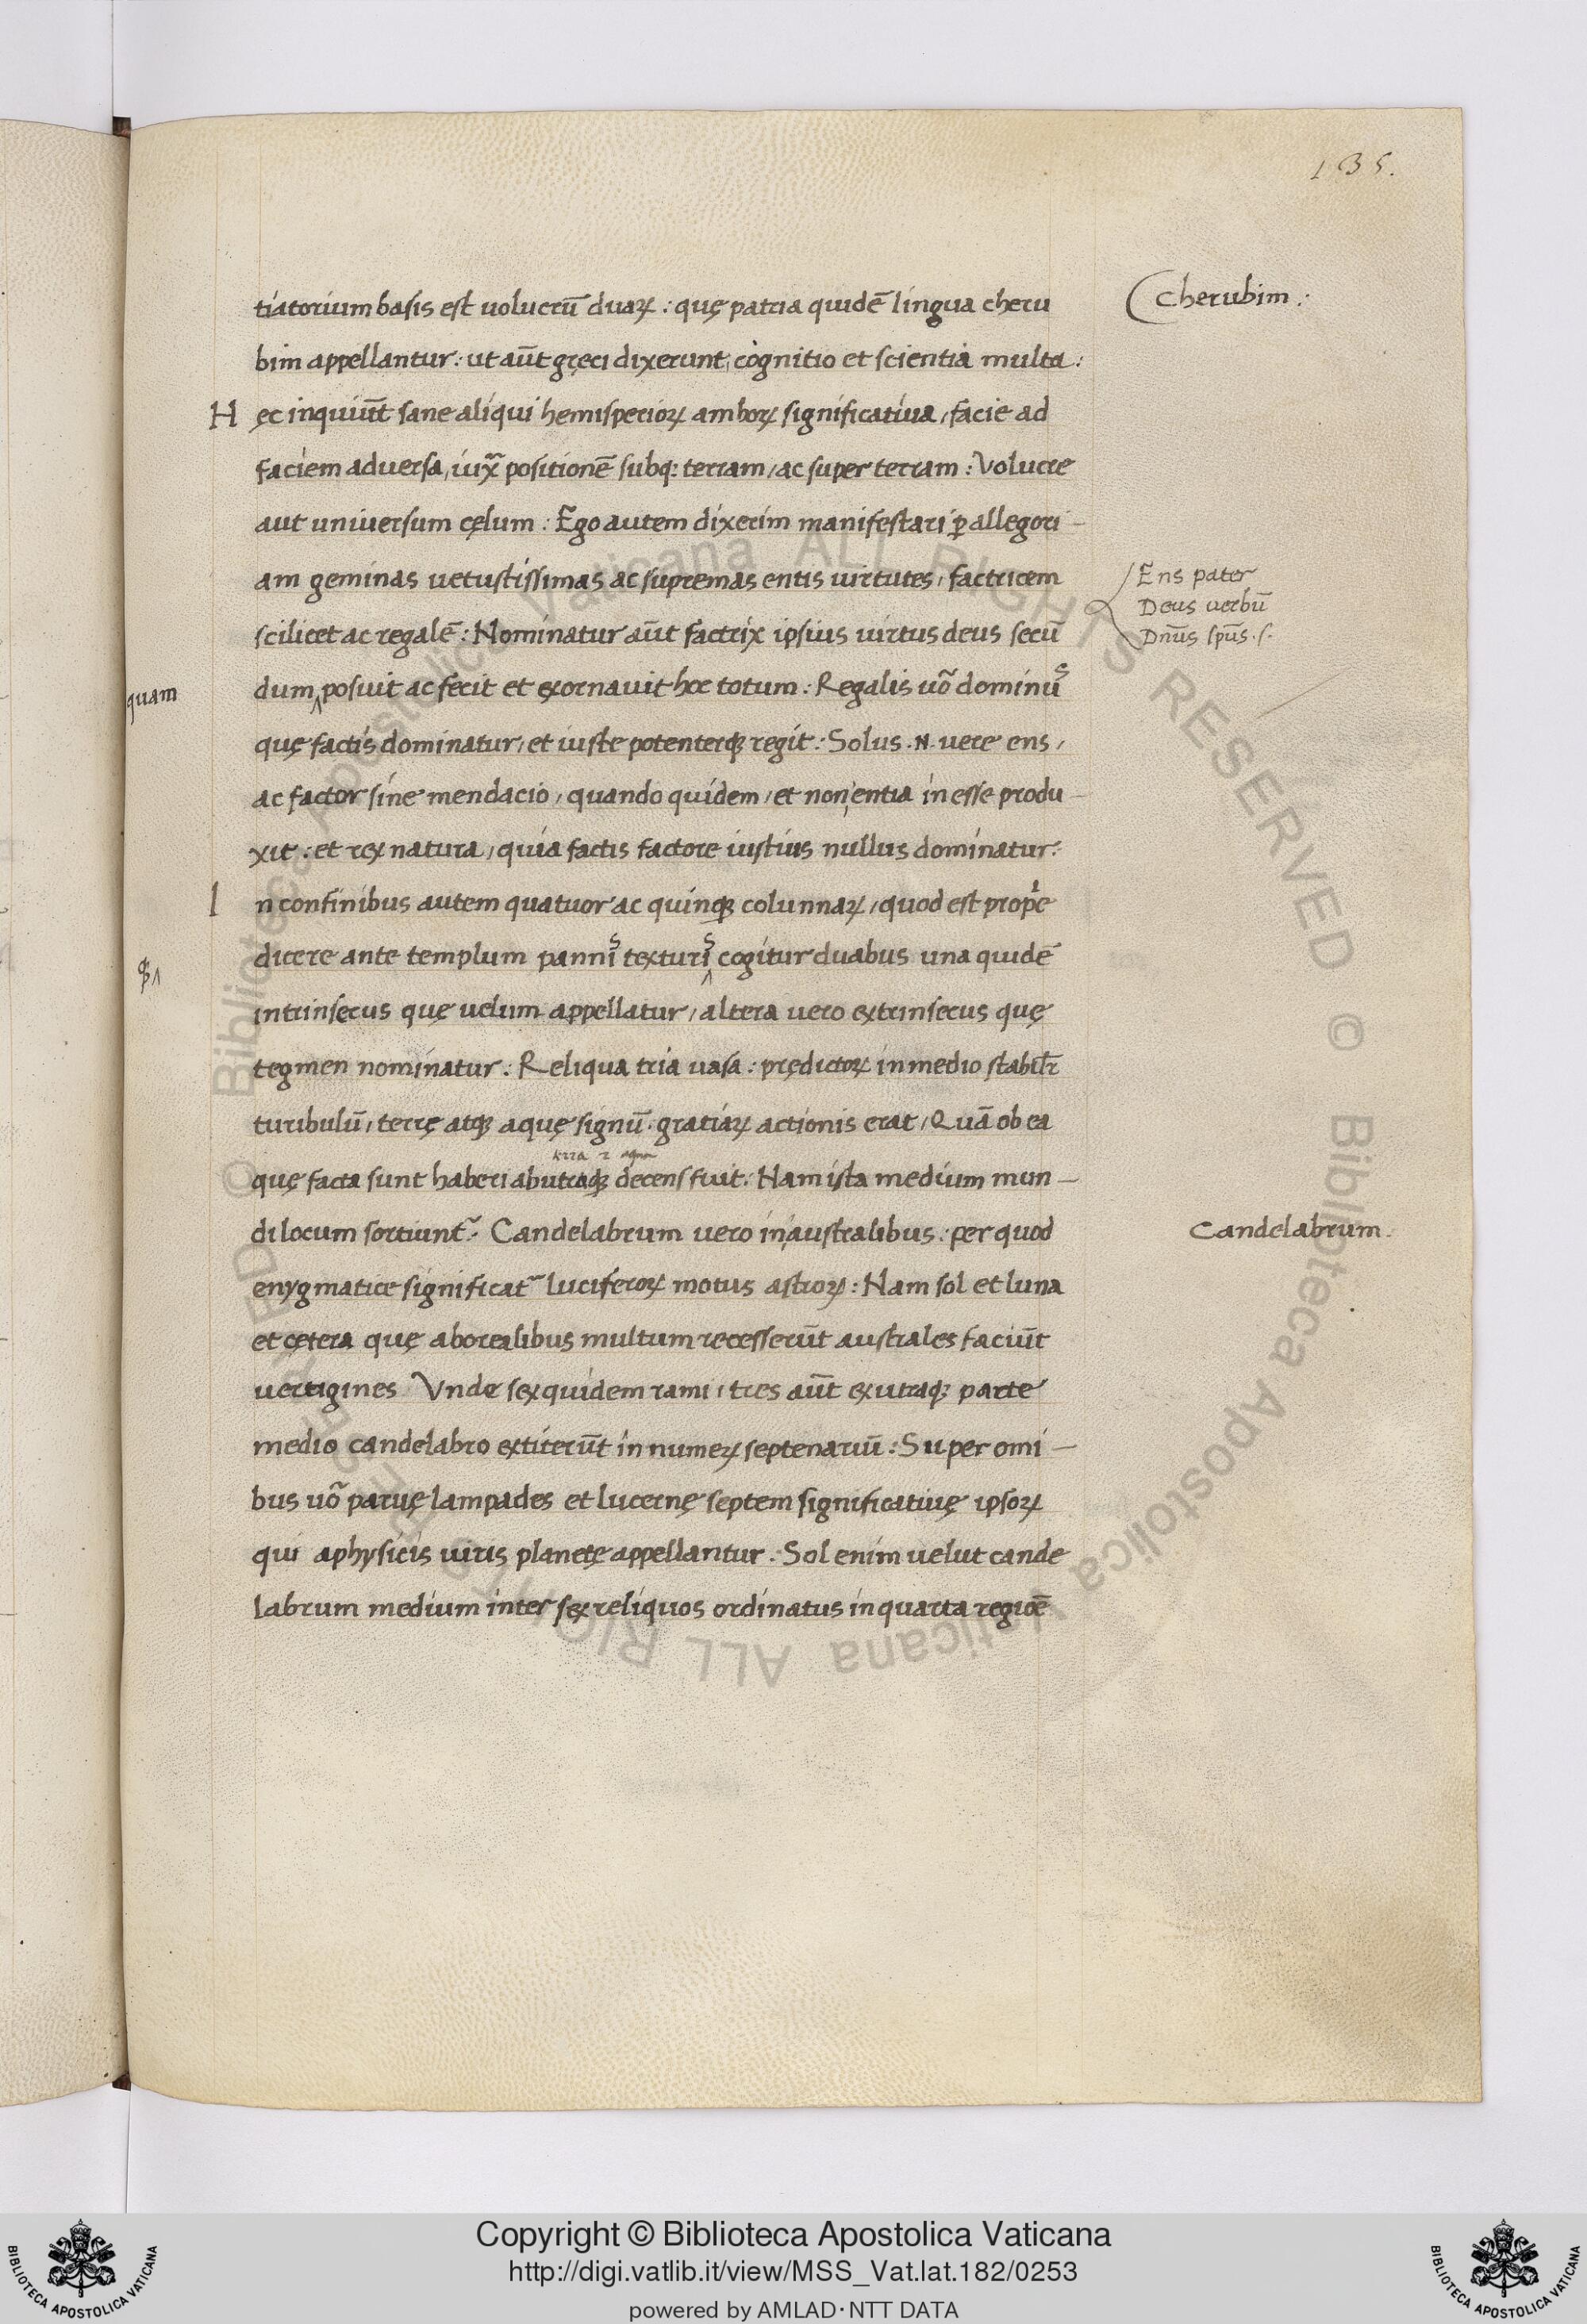 135.
tiatorium basis est uolucrū duaꝝ : quę patria quidē lingua cheru
bim appellantur : ut aūt gręci dixerunt, cognitio et scientia multa :
Hęc inquiūt sane aliqui hemisperioꝝ amboꝝ significatiua, facie ad
faciem aduersa, iuxᵃ positionē subq; terram, ac super terram : Volucre
aut uniuersum cęlum : Ego autem dixerim manifestari ꝑ allegori-
am geminas uetustissimas ac supremas entis uirtutes, factricem
scilicet ac regalē : Nominatur aūt factrix ipsius uirtus deus secū
dum ‸ posuit ac fecit et exornauit hoc totum : Regalis uō dominus
quę factis dominatur, et iuste potenterq; regit : Solus .N. uere ens,
ac factor sine mendacio, quando quidem, et non entia in esse produ-
xit : et rex natura, quia factis factore iustius nullus dominatur :
In confinibus autem quatuor ac quinq; colunnaꝝ, quod est propͥe
dicere ante templum pannis texturis ‸ cogitur duabus una quidē
intrinsecus quę uelum appellatur, altera uero extrinsecus quę
tegmen nominatur : Reliqua tria uasa : prędictoꝝ in medio
turibulū, terrę atq; aquę signū. gratiaꝝ actionis erat, Quā ob ea
quę facta sunt haberi ab utraq; decens fuit : Nam ista medium mun-
di locum sortiunt᷑ : Candelabrum uero in australibus : per quod
enygmatice significat᷑ luciferoꝝ motus astroꝝ : Nam sol et luna
et cętera quę a borealibus multum recesserūt australes faciūt
uertigines Vnde sex quidem rami, tres aūt ex utraq; parte
medio candelabro extiterūt in numeꝝ septenariū : Super omi-
bus uō paruę lampades et lucernę septem significatiuę ipsoꝝ
qui a physicis uiris planetę appellantur. Sol enim uelut cande
labrum medium inter sex reliquos ordinatus in quarta regiōe
Cherubim :
Ens pater
Deus uerbū
Dn̄us sp̄us .s.
quam
Candelabrum.
© Biblioteca Apostolica Vaticana ALL RIGHTS RESERVED © Biblioteca Apostolica Vaticana ALL RIGHTS RESERVED
Copyright © Biblioteca Apostolica Vaticana
http://digi.vatlib.it/view/MSS_Vat.lat.182/0253
powered by AMLAD·NTT DATA
BIBLIOTECA APOSTOLICA VATICANA
BIBLIOTECA APOSTOLICA VATICANA